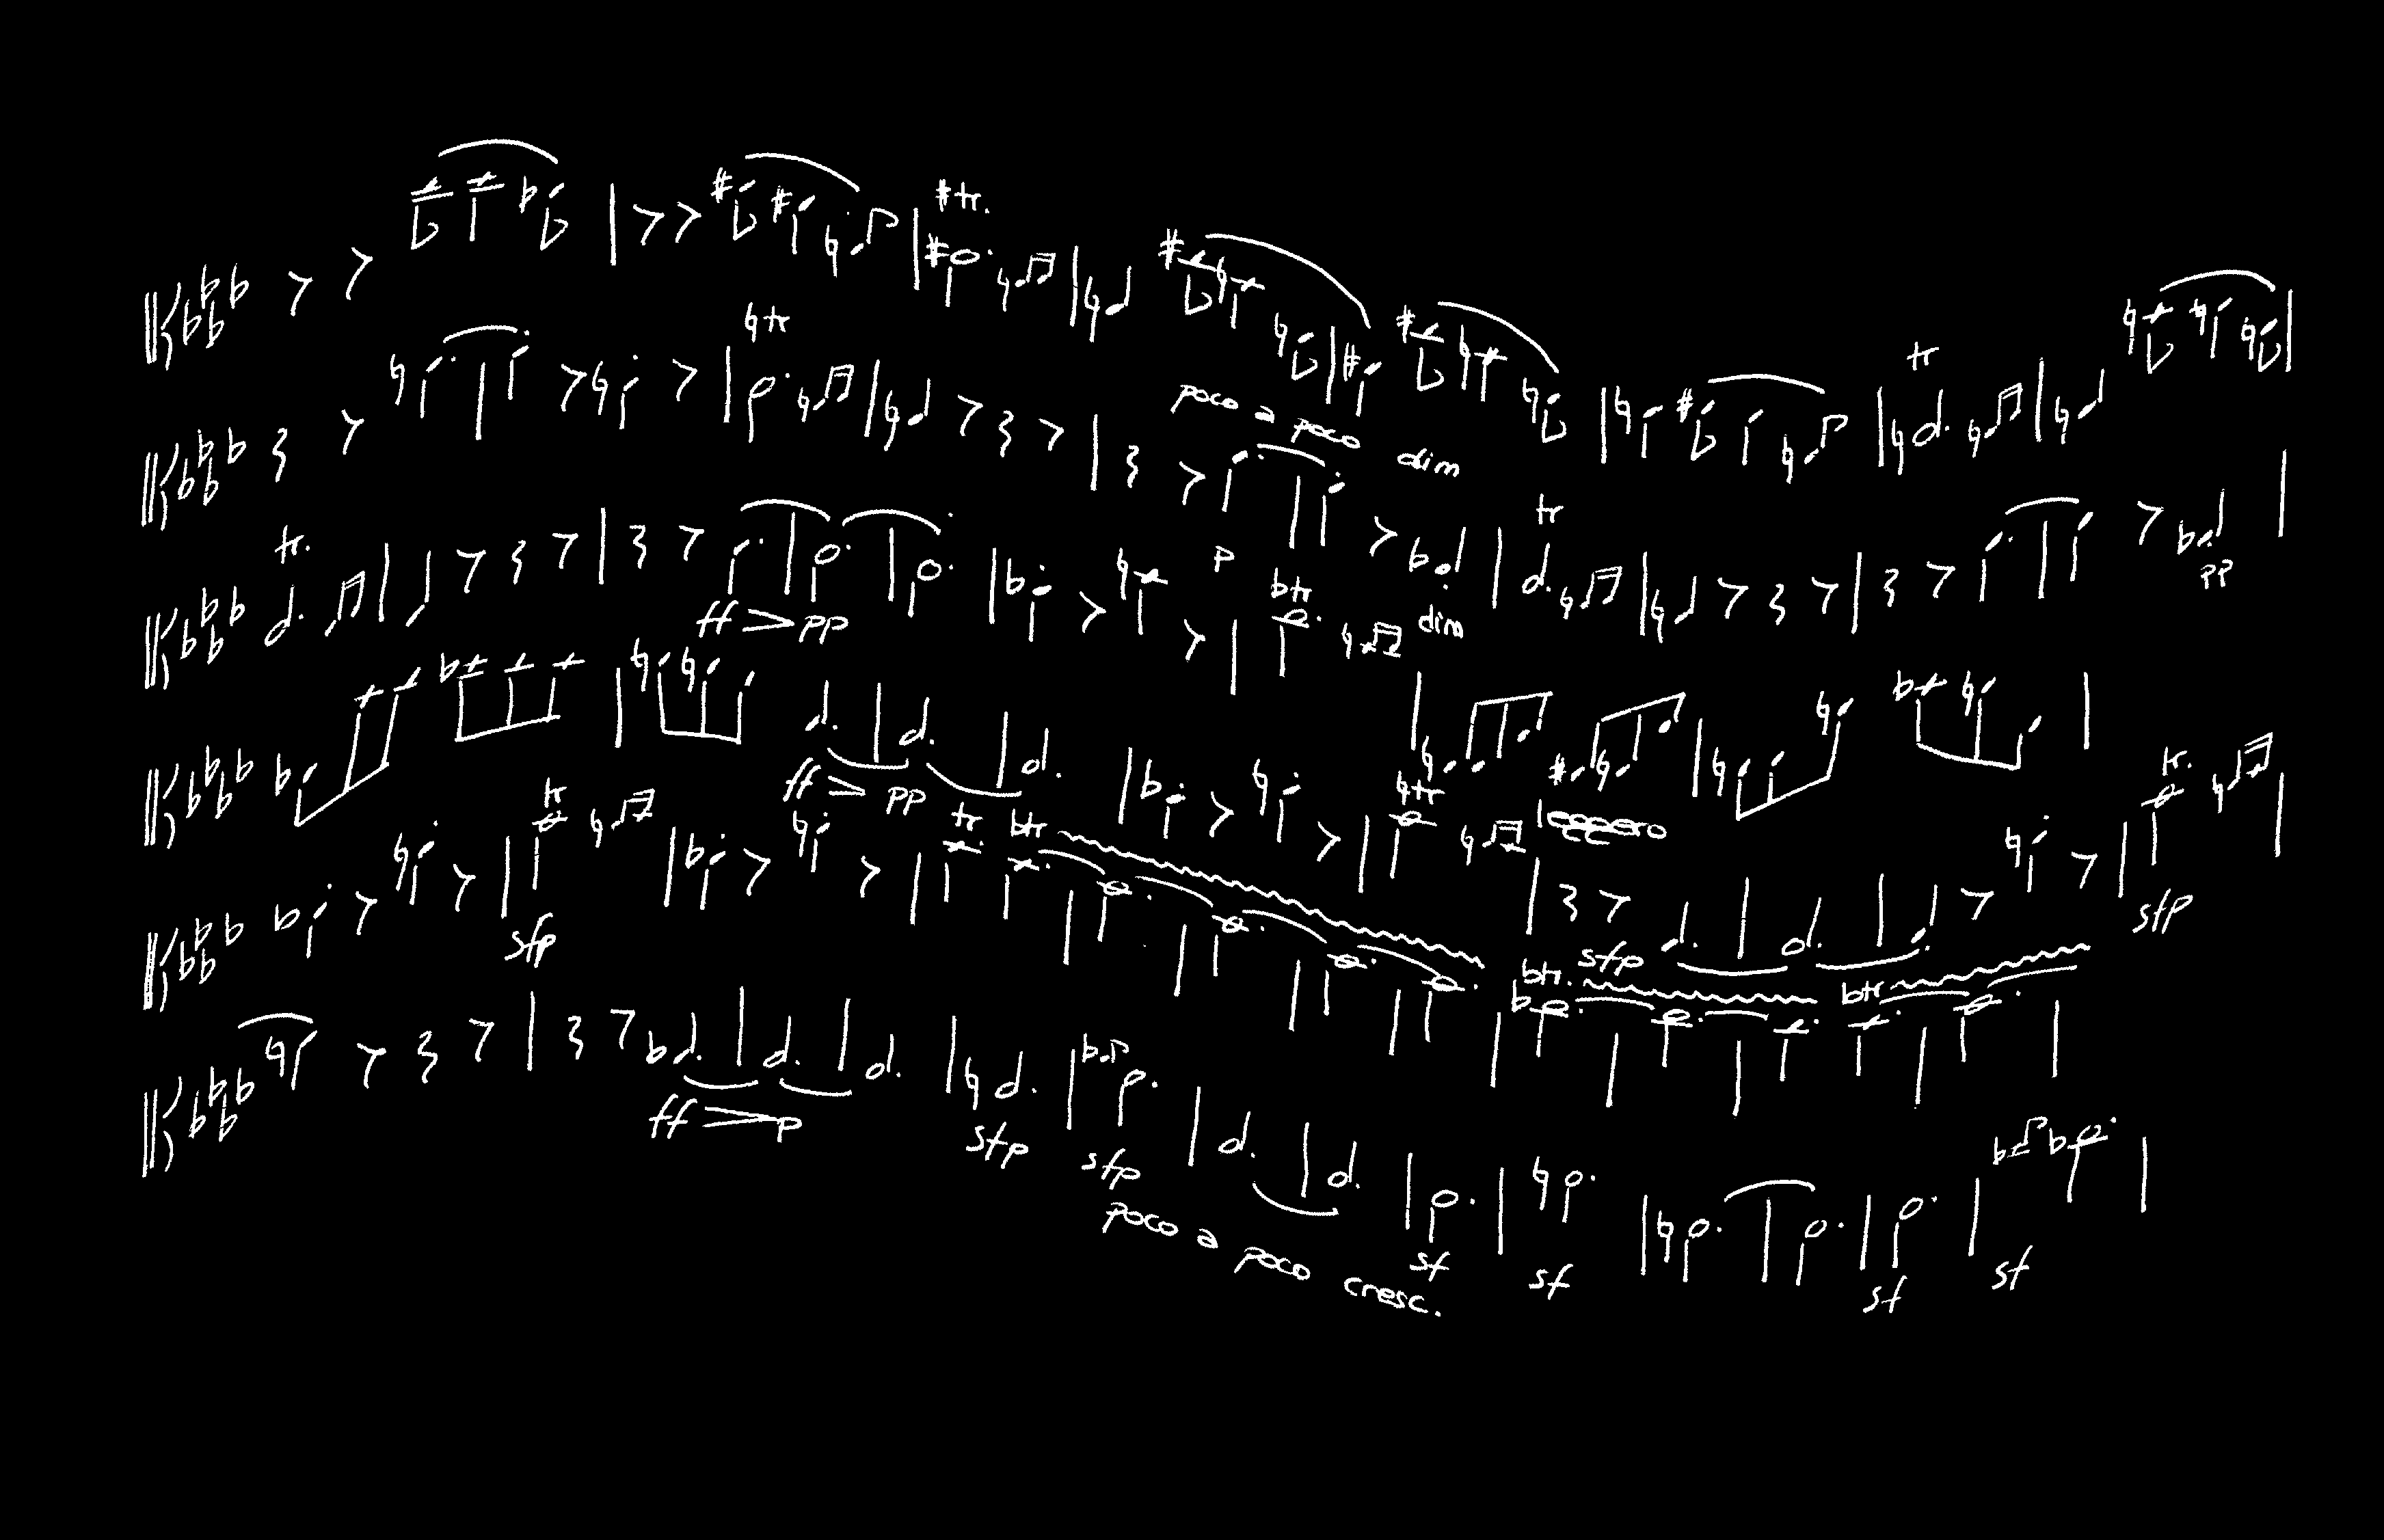 tr.
tr
tr
poco a poco dim
tr
tr.
p
pp
ff pp
tr
dim
ff pp
tr
leggero
tr
tr tr
tr.
sfp
sfp
sfp
tr. tr
ff p
sfp
sfp
poco a poco cresc.
sf
sf
sf
sf